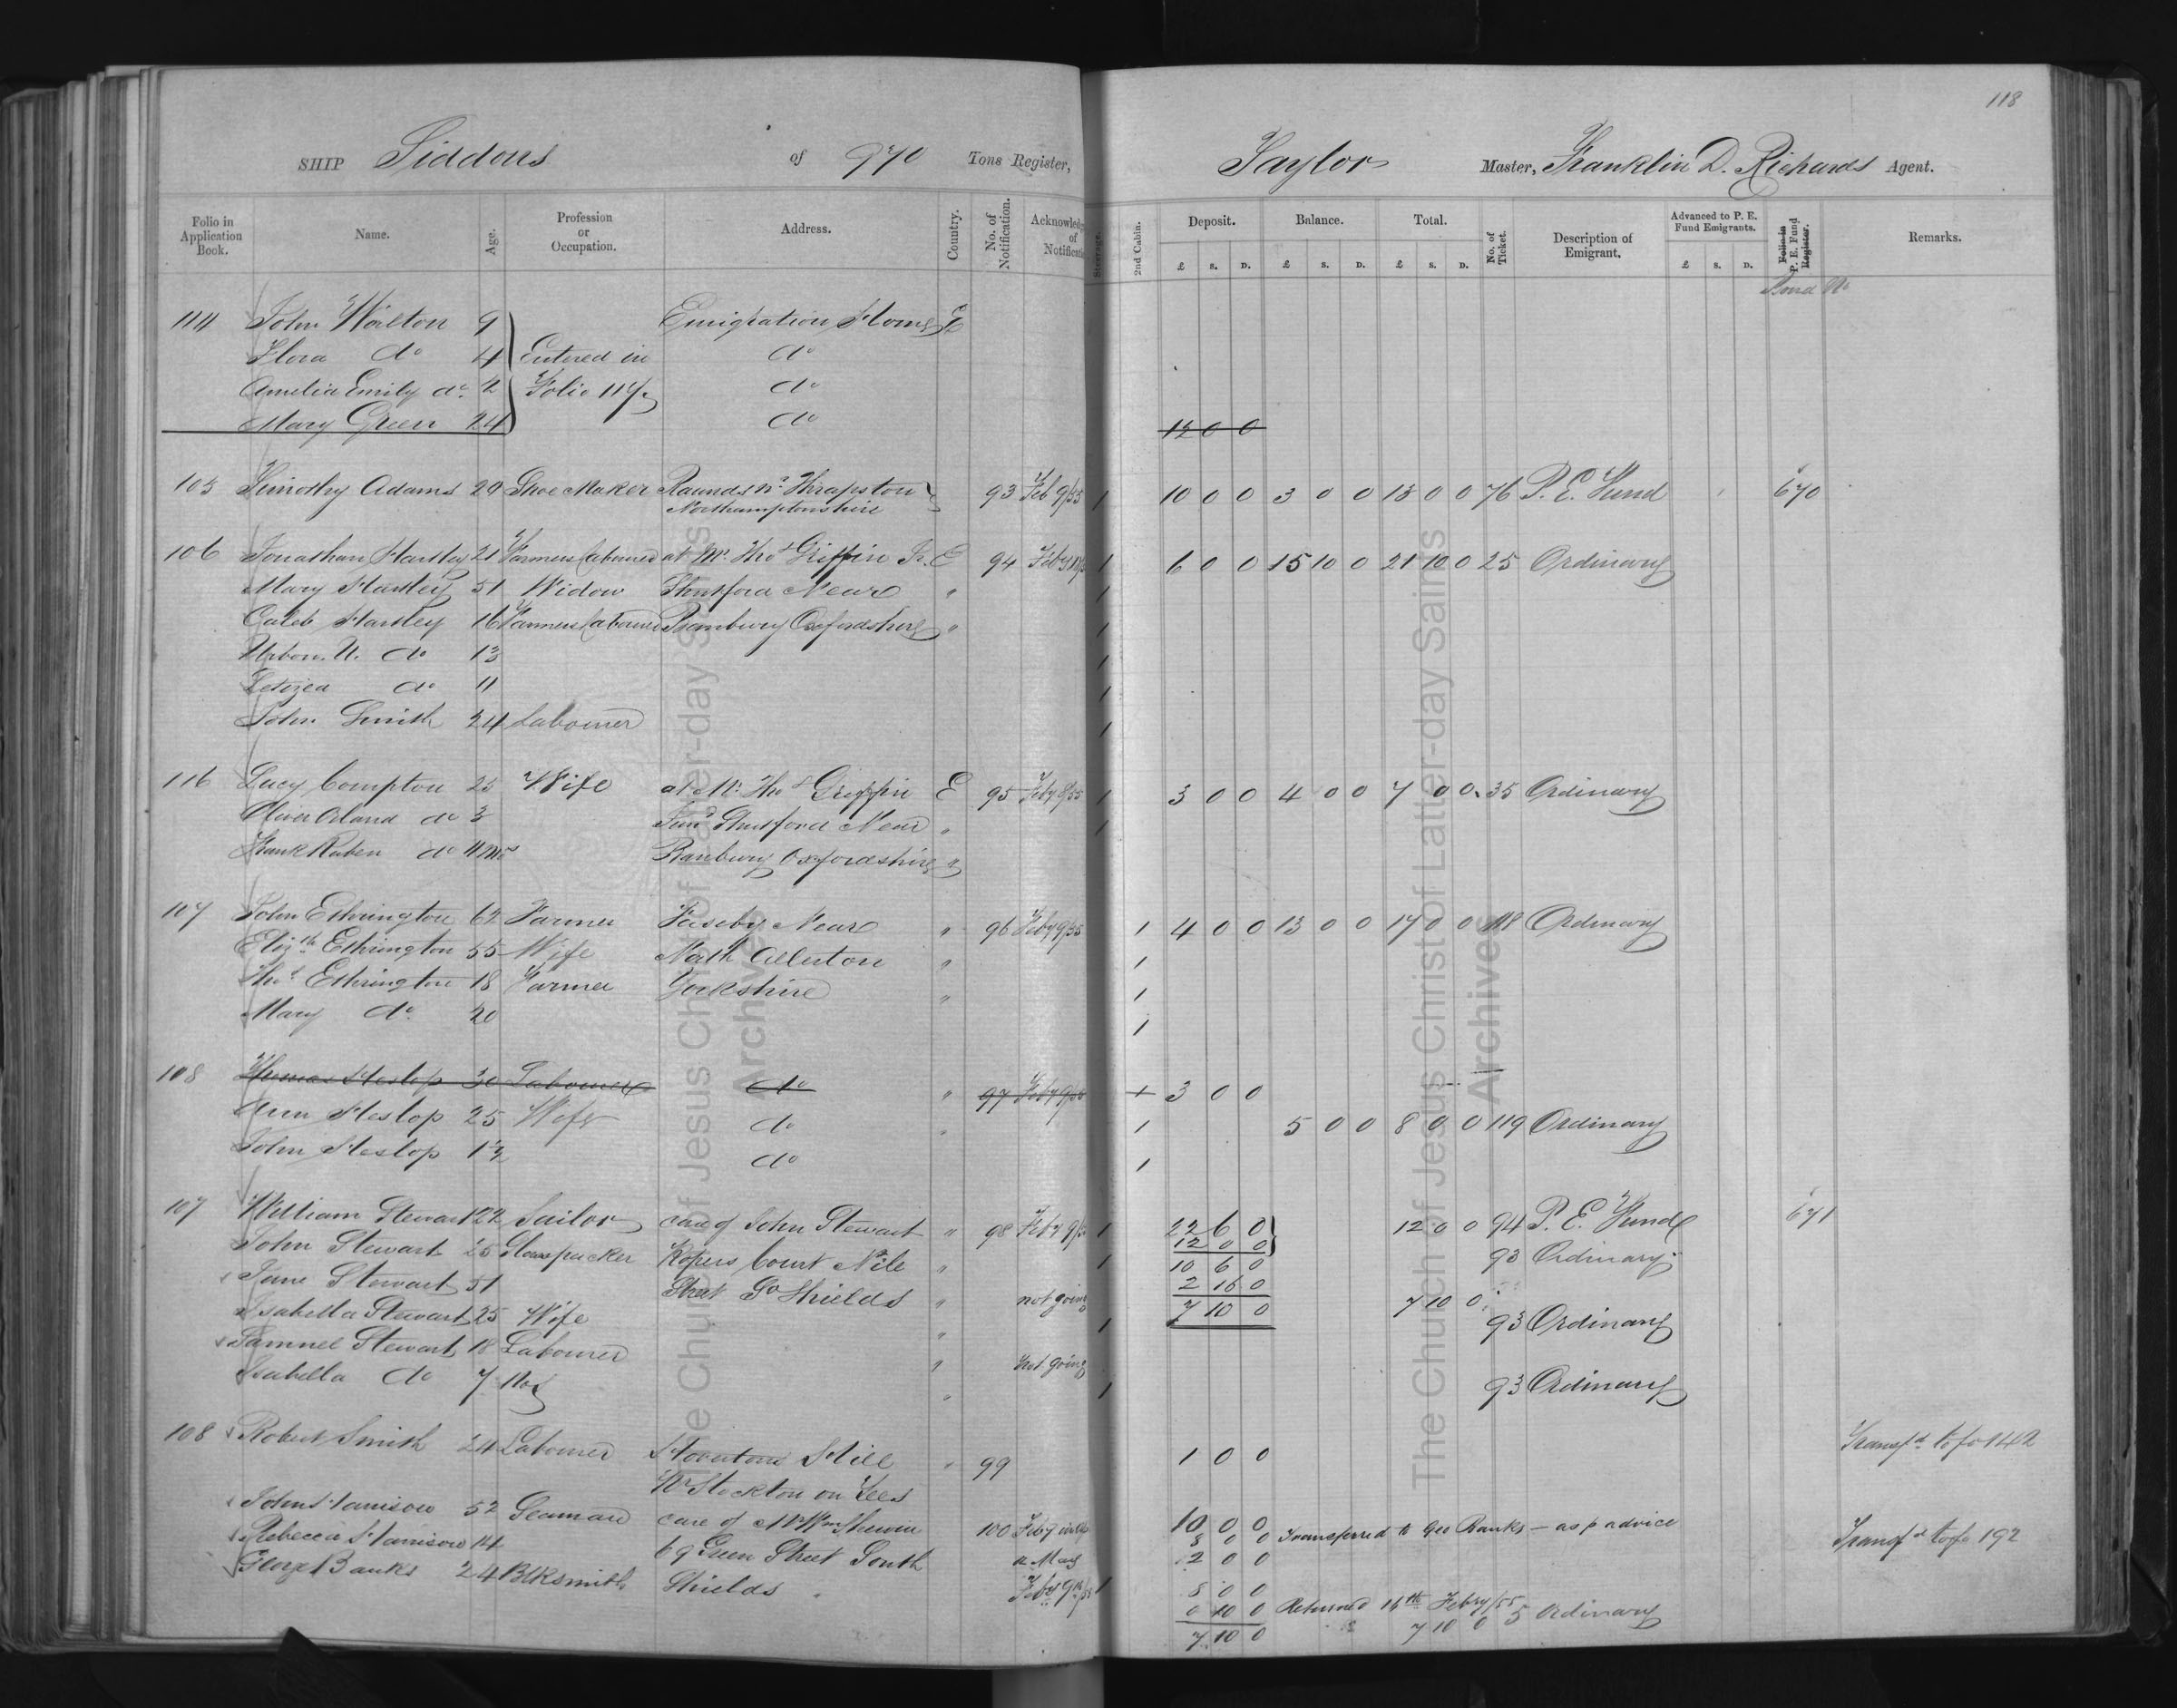 118
SHIP Siddons of 970 Tons Register, Taylor Master, Franklin D. Richards Agent.
Folio in Application Book. Name. Age. Profession or Occupation. Address. Country. No. of Notification. Acknowledg of Notificati Steerage. 2nd Cabin. Deposit. £ S. D. Balance. £ S. D. Total. £ S. D. No. of Ticket. Description of Emigrant. Advanced to P. E. Fund Emigrants. £ S. D. Folio in P. E. Fund Register. Remarks.
Bond No
111 John Walton 9 Emigration Home E
Flora do 4 Entered in do
Amelia Emily do. 2 Folio 117. do
Mary Green 24 do 12 0 0
103 Timothy Adams 29 Shoe Maker Raunds nr. Thrapston 93 Feb 9/55 1 10 0 0 3 0 0 13 0 0 76 P. E. Fund 670
Northamptonshire
106 Jonathan Hartley 21 Farmers Labourer at Mr. Thos Griffin Sr. E 94 Feby 1 6 0 0 15 10 0 21 10 0 25 Ordinary
Mary Hartley 51 Widow Shutford Near " 1
Caleb Hartley 16 Farmers Labourer Banbury Oxfordshire " 1
do 13 1
do 11 1
John Smith 24 Labourer 1
116 Lucy Compton 25 Wife at Mr. Thos Griffin E 95 Feby 9/55 1 3 0 0 4 0 0 7 0 0 35 Ordinary
Oliver Orland do 3 Senr Shutford Near " 1
Frank Ruben do 4 Mos Banbury Oxfordshire "
107 John Ethrington 62 Farmer Faseby Near " 96 Feby 9/55 1 4 0 0 13 0 0 17 0 0 118 Ordinary
Elizth Ethrington 55 Wife North Allerton " 1
Thos Ethrington 18 Farmer Yorkshire " 1
Mary do. 20 1
108 Thomas Heslop 30 Labourer do " 97 Feby 9/55 + 3 0 0
Ann Heslop 25 Wife do " 1 5 0 0 8 0 0 119 Ordinary
John Heslop 1½ do 1
107 William Stewart 22 Sailor care of John Stewart " 98 Feby 9/ 1 22 6 0 12 0 0 94 P. E. Fund 671
John Stewart 25 Glasspacker Ropers Court Nile " 1 12 0 0 93 Ordinary
10 6 0
Jane Stewart 51 Street So Shields " not going 2 16 0
Isabella Stewart 25 Wife " 1 7 10 0 7 10 0 93 Ordinary
Samuel Stewart 18 Labourer " not going
Isabella do 7 mos " 1 93 Ordinary
108 Robert Smith 24 Labourer Mill " 99 1 0 0 Transfd to fo 142
Nr Stockton on Tees
John Harrison 52 Seaman care of Mr Wm Sherwin 100 Feby 10 0 0
8 0 0 Transferred to Geo Banks — as p advice
Rebecca Harrison 14 69 Green Street South May 2 0 0 Transfd to fo 192
George Banks 24 Blksmith Shields Feby 9th/55 1 8 0 0
0 10 0 Returned 16th Feby/55
7 10 0 7 10 0 5 Ordinary
The Church of Jesus Christ of Latter-day Saints
Archives
The Church of Jesus Christ of Latter-day Saints
Archives